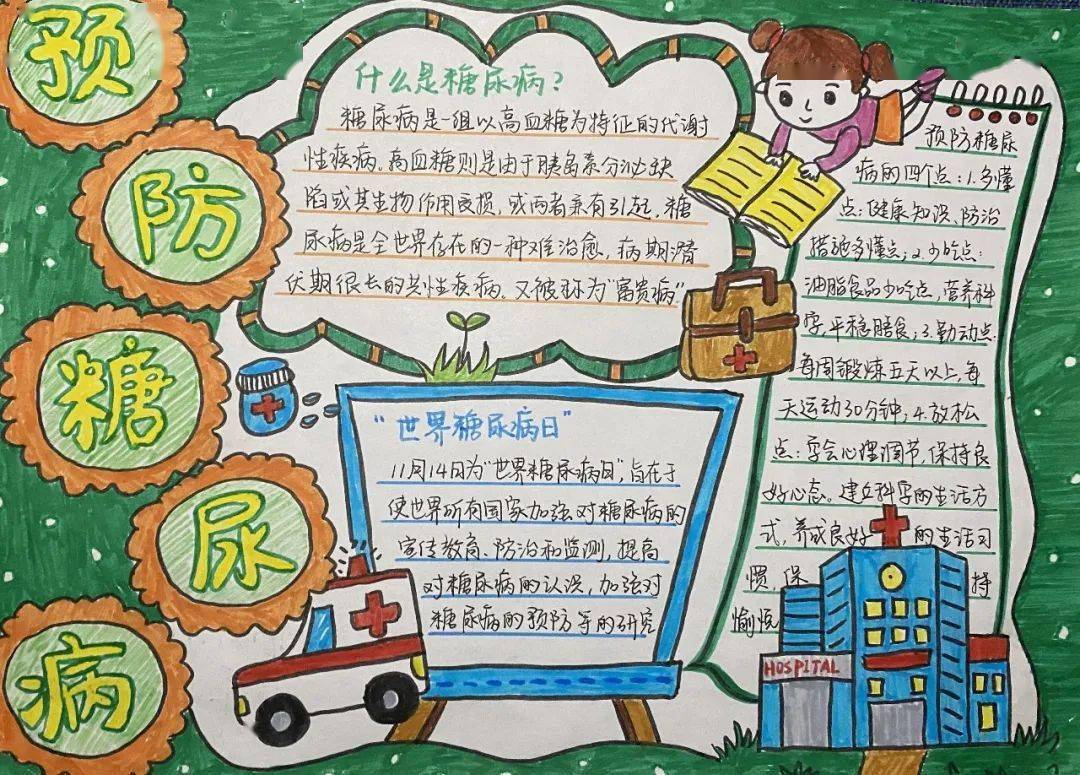 预
防
糖
尿
病
什么是糖尿病？
糖尿病是一组以高血糖为特征的代谢
性疾病。高血糖则是由于胰岛素分泌缺
陷或其生物作用受损，或两者兼有引起，糖
尿病是全世界存在的一种难治愈，病期潜
伏期很长的共性疾病。又被称为“富贵病”
“世界糖尿病日”
11月14日为“世界糖尿病日”，旨在于
使世界所有国家加强对糖尿病的
宣传教育、防治和监测，提高
对糖尿病的认识，加强对
糖尿病的预防等的研究
预防糖尿
病的四个点：1.多懂
点：健康知识、防治
措施多懂点；2.少吃点：
油脂食品少吃点，营养科
学，平稳膳食；3.勤动点：
每周锻炼五天以上，每
天运动30分钟；4.放松
点：学会心理调节，保持良
好心态。建立科学的生活方
式，养成良好的生活习
惯，保持
愉悦
HOSPITAL